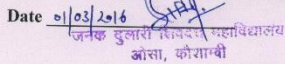 Date 01/03/2016
जनक दुलारी शिवदत्त महाविद्यालय
ओसा, कौशाम्बी